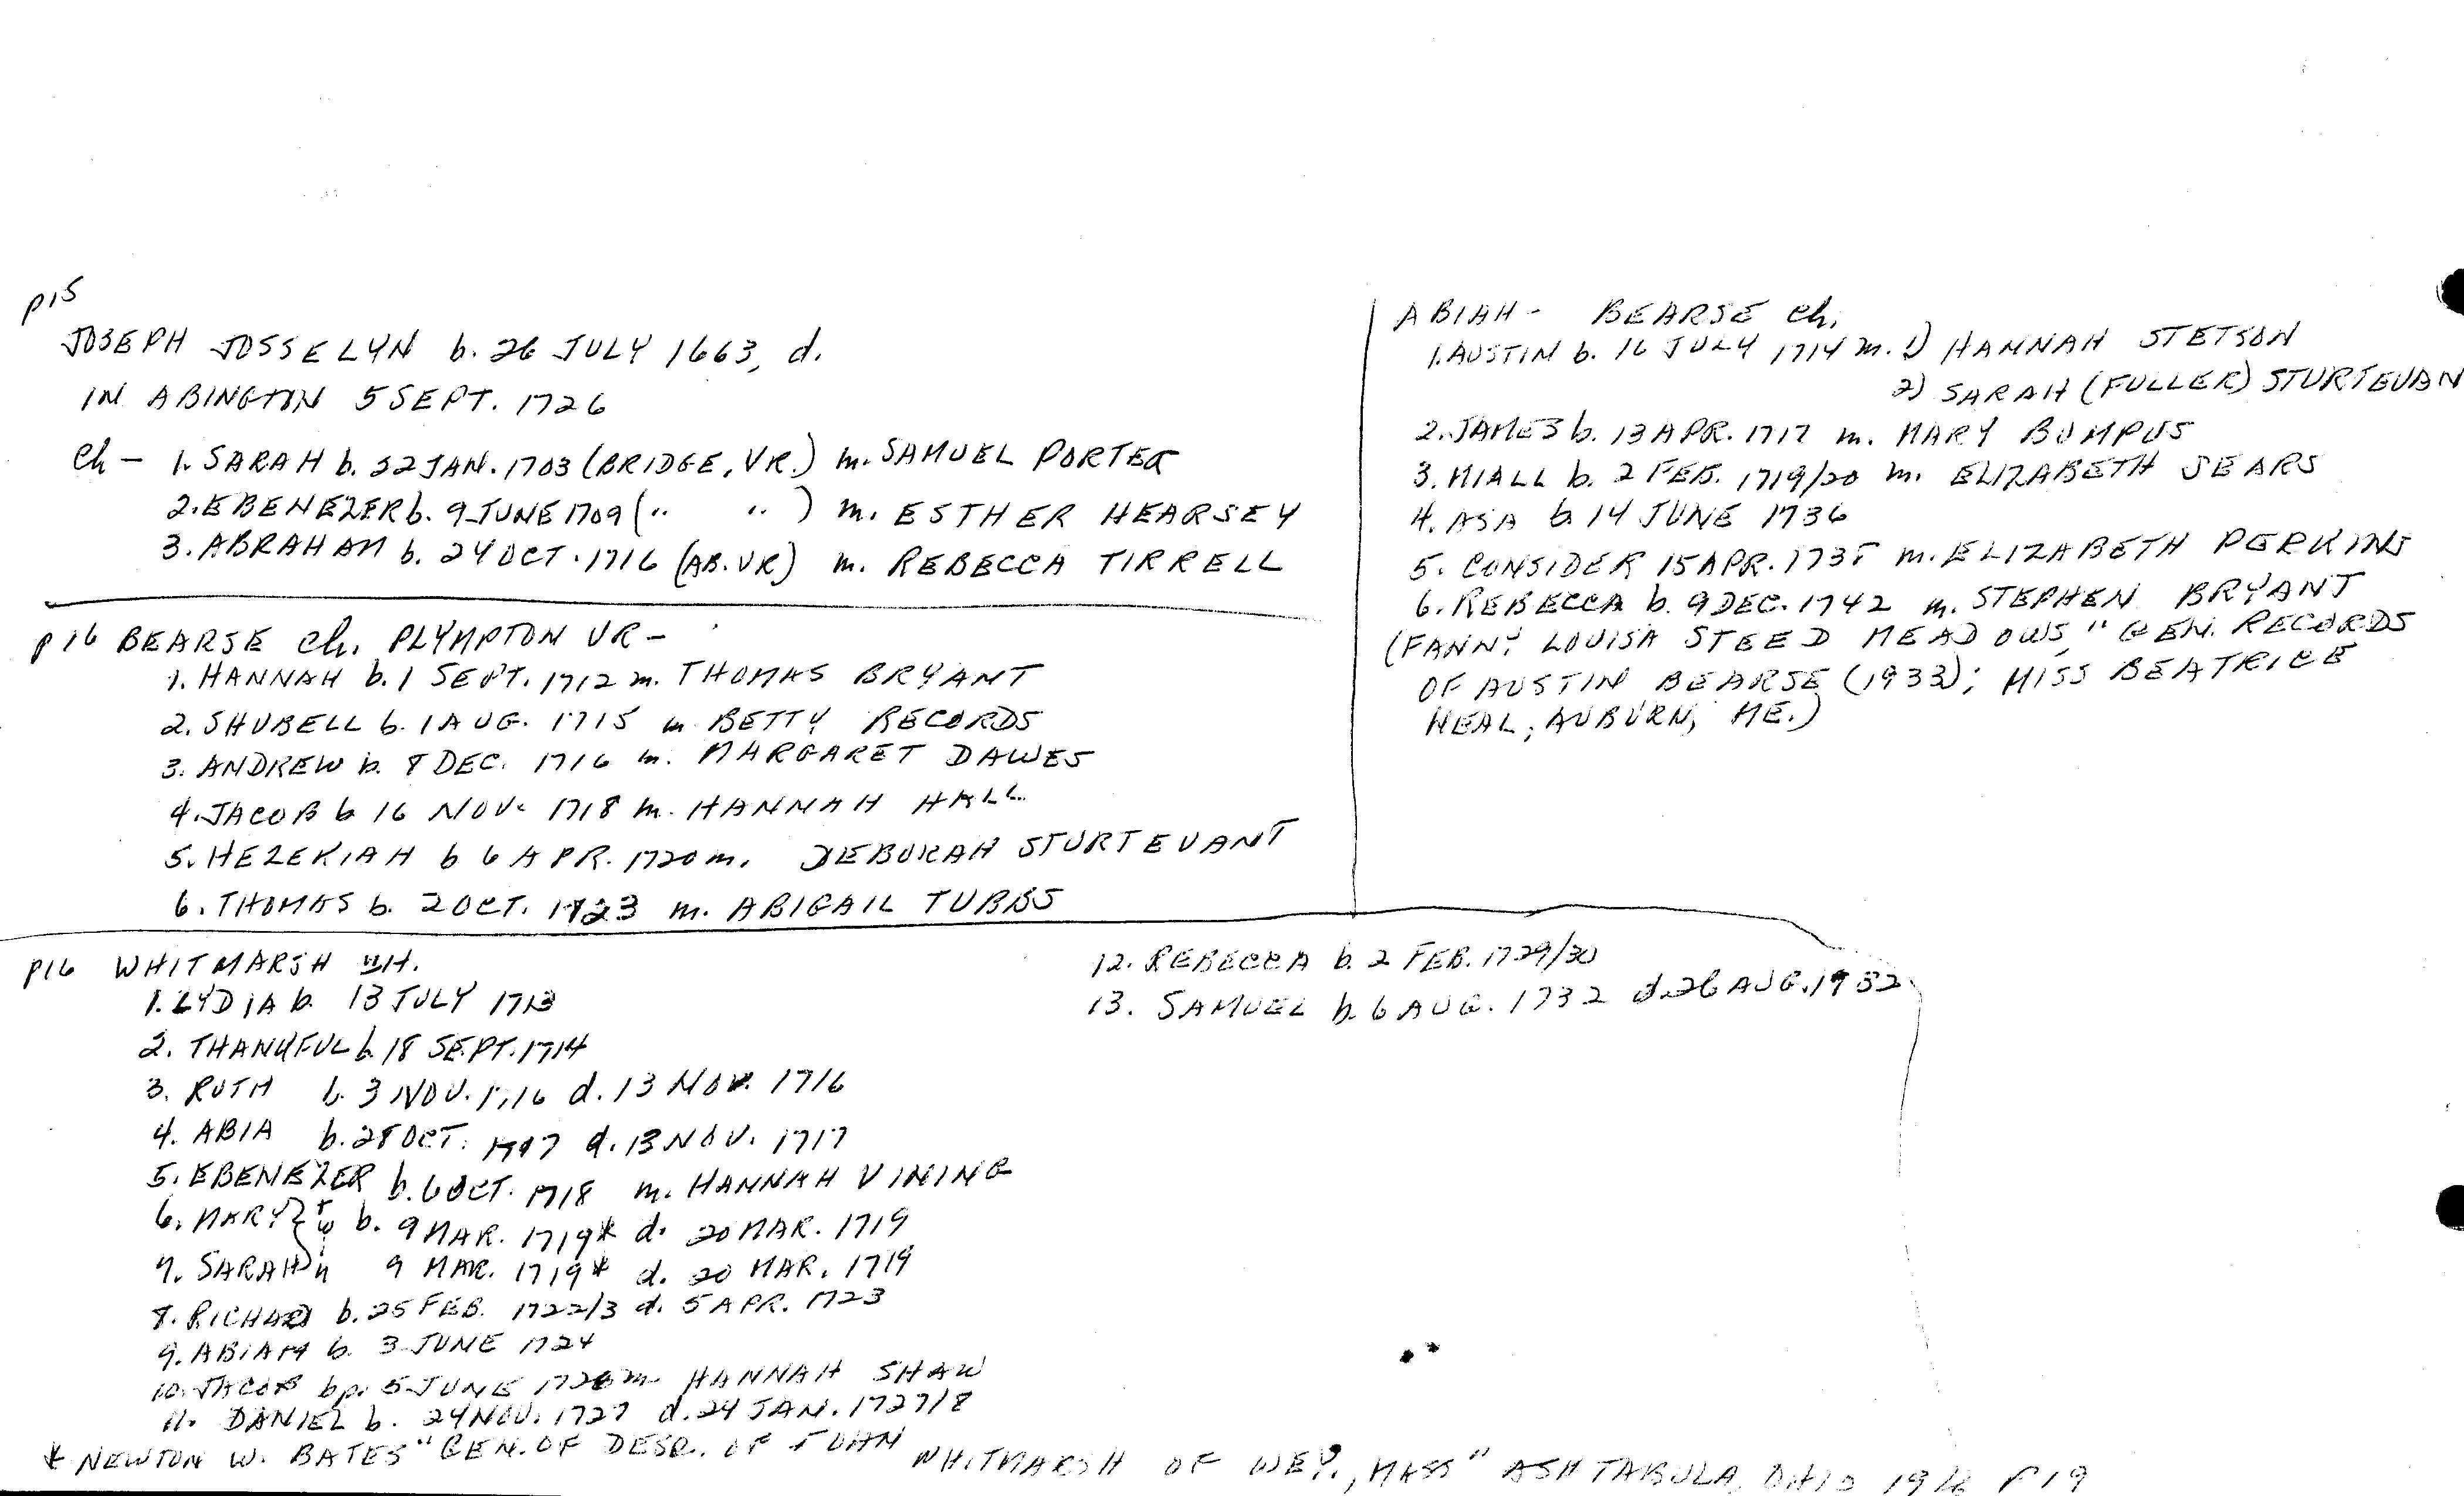 p15
JOSEPH JOSSELYN b. 26 JULY 1663, d.
IN ABINGTON 5 SEPT. 1726
Ch - 1. SARAH b. 22 JAN. 1703 (BRIDGE, VR.) m. SAMUEL PORTER
2. EBENEZER b. 9 JUNE 1709 (" ") m. ESTHER HEARSEY
3. ABRAHAM b. 24 OCT. 1716 (AB. VR) m. REBECCA TIRRELL
p16 BEARSE Ch. PLYMPTON VR -
1. HANNAH b. 1 SEPT. 1712 m. THOMAS BRYANT
2. SHUBELL b. 1 AUG. 1715 m BETTY RECORDS
3. ANDREW b. 8 DEC. 1716 m. MARGARET DAWES
4. JACOB b 16 NOV. 1718 m. HANNAH HALL
5. HEZEKIAH b 6 APR. 1720 m. DEBORAH STURTEVANT
6. THOMAS b. 2 OCT. 1723 m. ABIGAIL TUBBS
ABIAH - BEARSE Ch.
1. AUSTIN b. 16 JULY 1714 m. 1) HANNAH STETSON
2) SARAH (FULLER) STURTEVAN
2. JAMES b. 13 APR. 1717 m. MARY BUMPUS
3. HIALL b. 2 FEB. 1719/20 m. ELIZABETH SEARS
4. ASA b. 14 JUNE 1736
5. CONSIDER 15 APR. m. ELIZABETH PERKINS
6. REBECCA b. 9 DEC. 1742 m. STEPHEN BRYANT
(FANNY LOUISA STEED MEADOWS, "GEN. RECORDS
OF AUSTIN BEARSE (1933); MISS BEATRICE
NEAL, AUBURN, ME.)
p16 WHITMARSH CH.
1. LYDIA b. 13 JULY 1713
2. THANKFUL b. 18 SEPT. 1714
3. RUTH b. 3 NOV. 1716 d. 13 NOV. 1716
4. ABIA b. 28 OCT. 1717 d. 13 NOV. 1717
5. EBENEZER b. 6 OCT. 1718 m. HANNAH VINING
6. MARY } tw b. 9 MAR. 1719* d. 20 MAR. 1719
7. SARAH } in 9 MAR. 1719* d. 20 MAR. 1719
8. RICHARD b. 25 FEB. 1722/3 d. 5 APR. 1723
9. ABIAH b. 3 JUNE 1724
10. JACOB bp. 5 JUNE 1726 m HANNAH SHAW
11. DANIEL b. 24 NOV. 1727 d. 24 JAN. 1727/8
12. REBECCA b. 2 FEB. 1729/30
13. SAMUEL b. 6 AUG. 1732 d. 26 AUG. 1732
* NEWTON W. BATES "GEN. OF DESC. OF JOHN WHITMARSH OF WEY., MASS" ASHTABULA, OHIO 1916 p 19